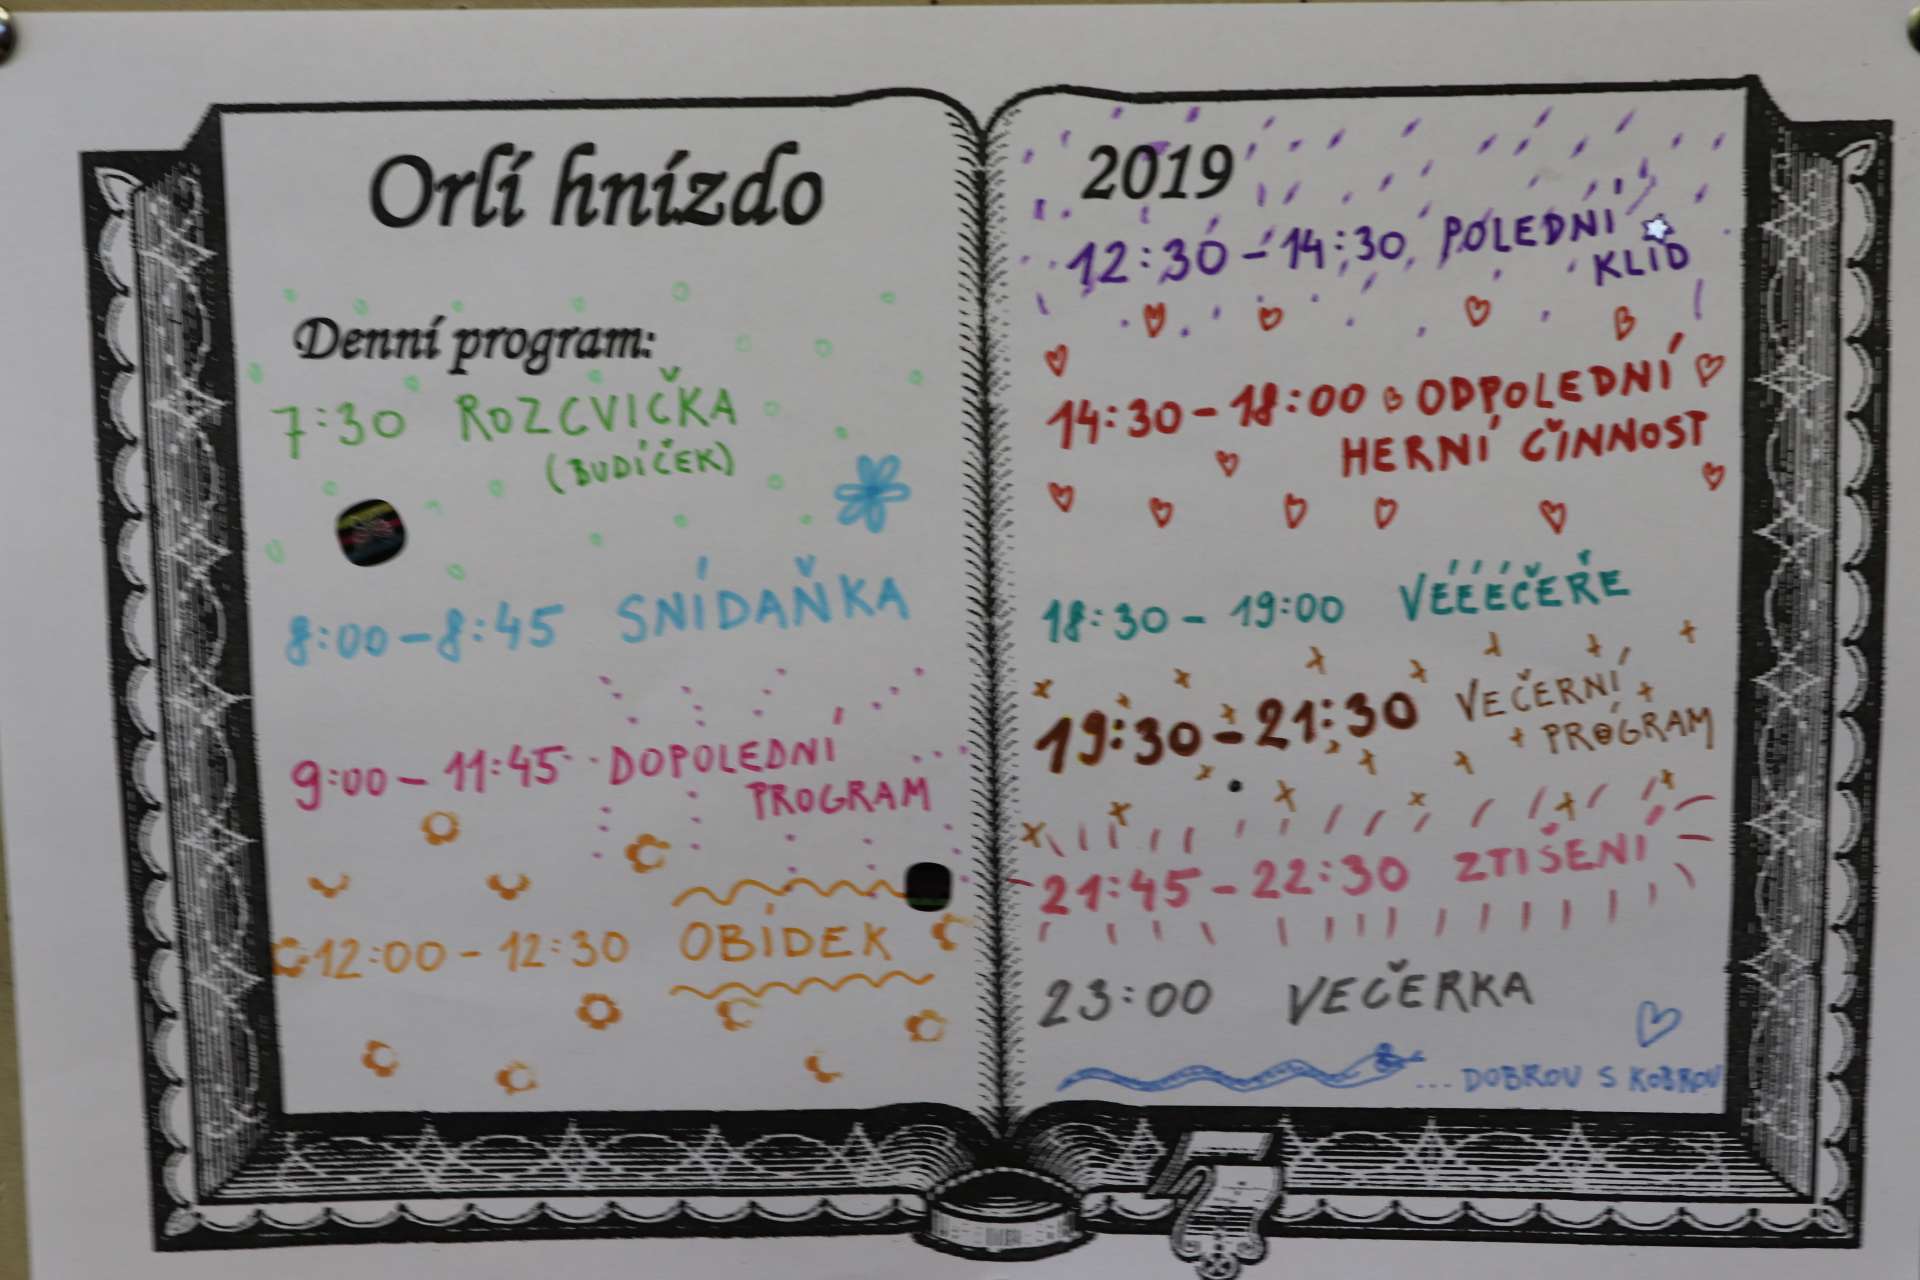 Orlí hnízdo
Denní program:
7:30 ROZCVIČKA
(BUDÍČEK)
8:00 - 8:45 SNÍDAŇKA
9:00 - 11:45 DOPOLEDNÍ
PROGRAM
12:00 - 12:30 OBÍDEK
2019
12:30 - 14:30 POLEDNÍ
KLID
14:30 - 18:00 ODPOLEDNÍ
HERNÍ ČINNOST
18:30 - 19:00 VÉÉÉČEŘE
19:30 - 21:30 VEČERNÍ
PROGRAM
21:45 - 22:30 ZTIŠENÍ
23:00 VEČERKA
... DOBROU S KOBROU